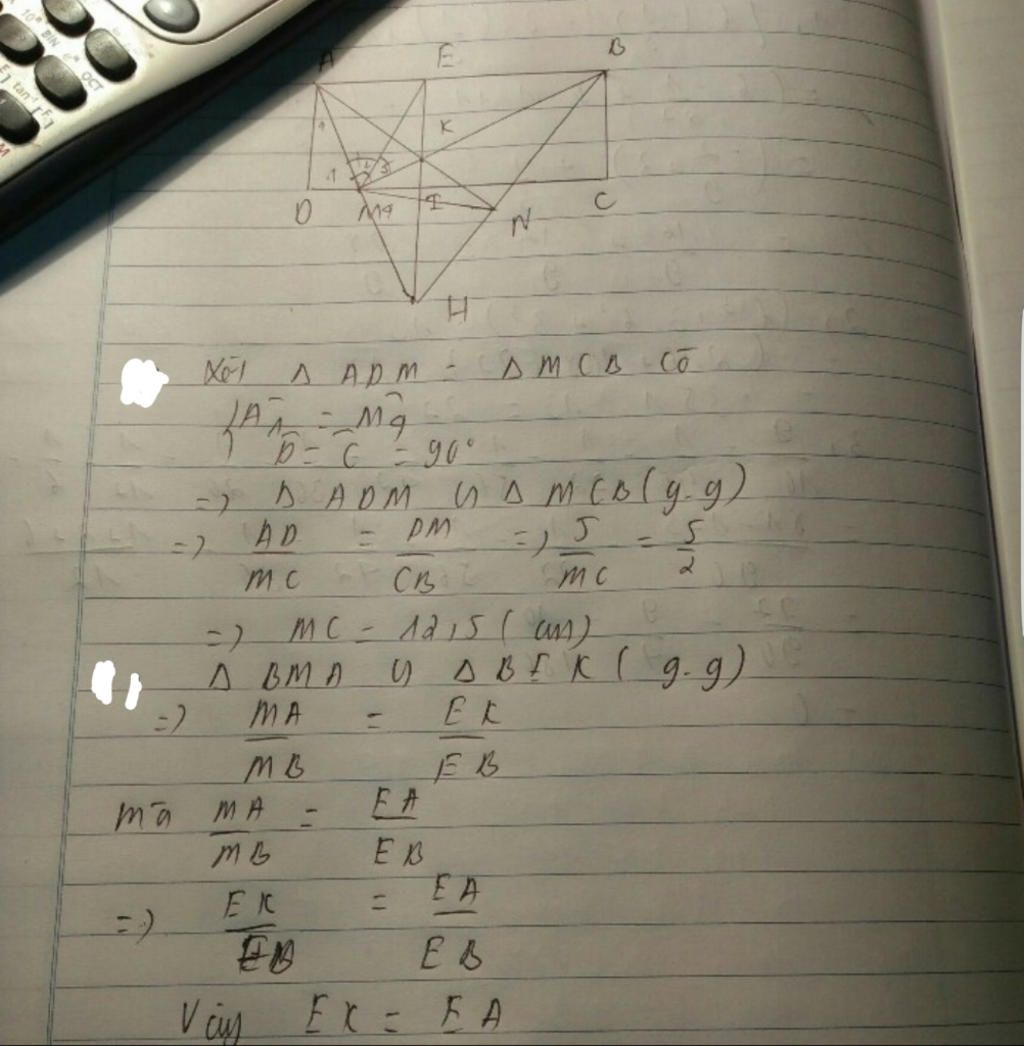 A E B
K
1 2 3
1
D M4 I N C
H
Xét Δ ADM - Δ MCB Có
Â1 = M̂4
D̂ = Ĉ = 90°
=> Δ ADM ∽ Δ MCB (g.g)
=> AD/MC = DM/CB => 5/MC = 5/2
=> MC = 12,5 (cm)
Δ BMA ∽ Δ BEK (g.g)
=> MA/MB = EK/EB
mà MA/MB = EA/EB
=> EK/EB = EA/EB
Vậy EK = EA